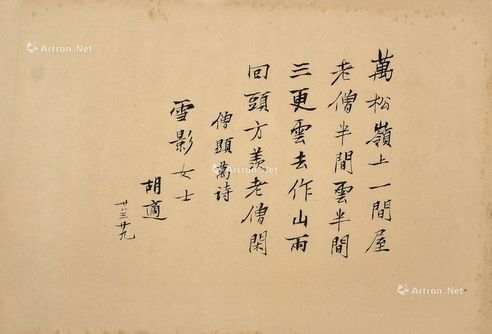 萬松嶺上一間屋
老僧半間雲半間
三更雲去作山雨
回頭方羨老僧閑
僧顯萬詩
雪影女士
胡適
廿、三、廿九
Artron.Net
Artron.Net
Artron.Net